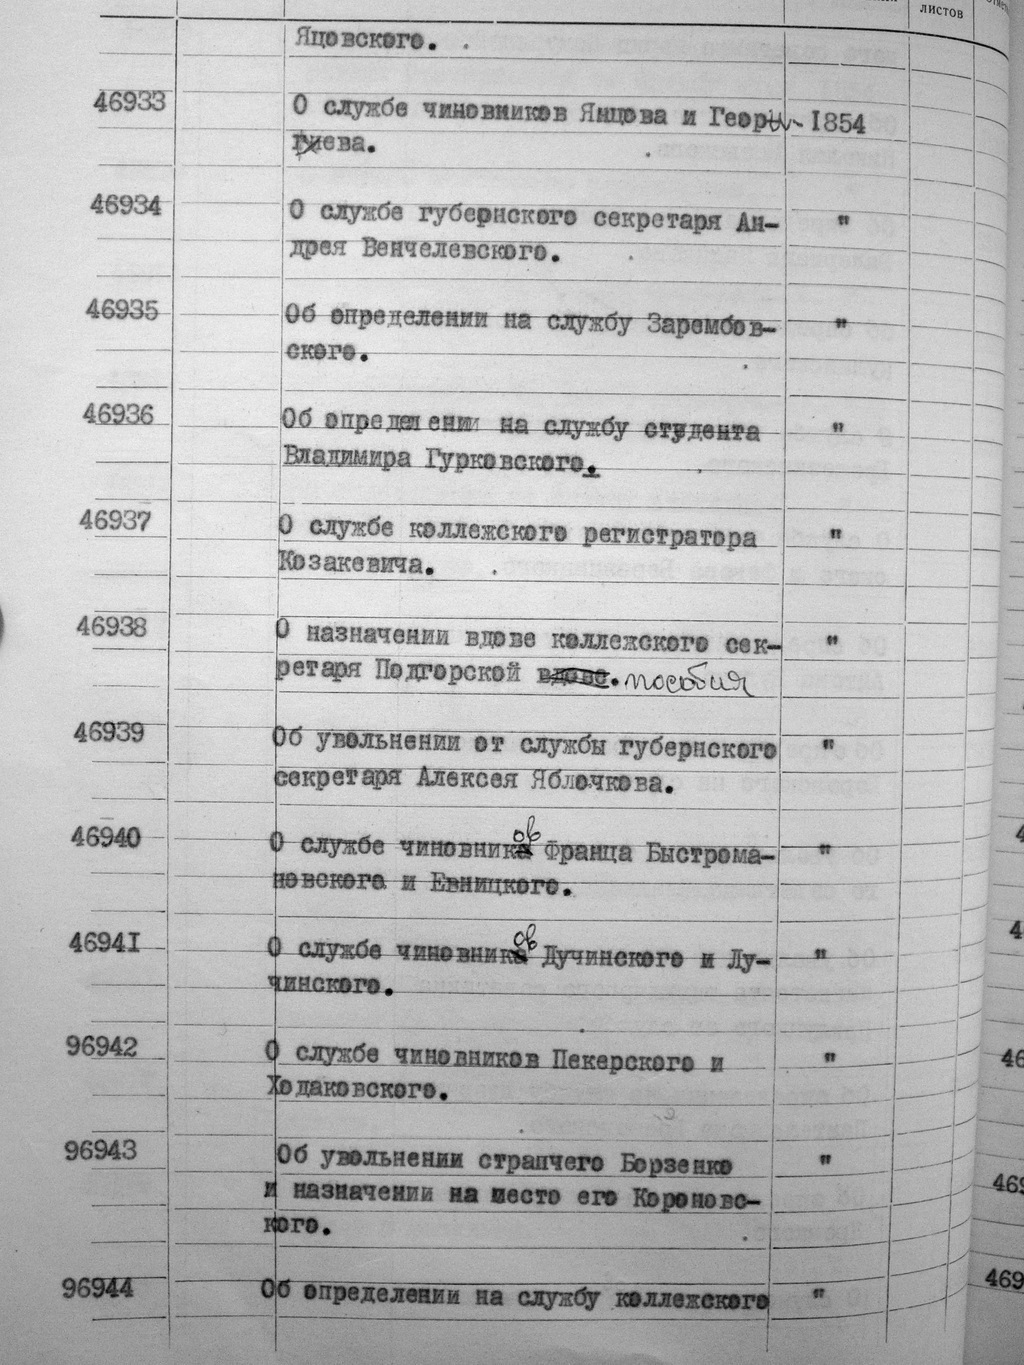 листов
Яцовского.
46933 О службе чиновников Янцова и Георги- 1854
ева.
46934 О службе губернского секретаря Ан- "
дрея Венчелевского.
46935 Об определении на службу Зарембов- "
ского.
46936 Об определении на службу студента "
Владимира Гурковского.
46937 О службе коллежского регистратора "
Козакевича.
46938 О назначении вдове коллежского сек- "
ретаря Подгорской вдове. пособия
46939 Об увольнении от службы губернского "
секретаря Алексея Яблочкова.
46940 О службе чиновников Франца Быстрома- "
новского и Евницкого.
4694I О службе чиновников Дучинского и Лу- "
чинского.
96942 О службе чиновников Пекерского и "
Ходаковского.
96943 Об увольнении стряпчего Борзенко "
и назначении на место его Короновс-
кого.
96944 Об определении на службу коллежского "